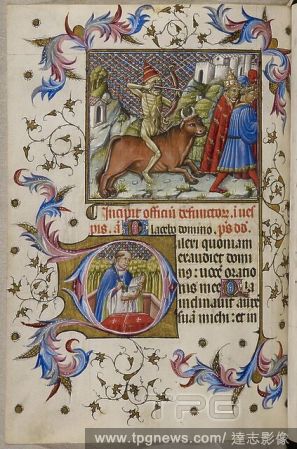 Incipit officiũ defunctor. i ues
pis. a Placebo domino. ps dd.
Dilexi quoniam
exaudiet domi
nus: uocẽ oratio
nis mee Quia
inclinauit aurẽ
suã michi: et in
TPG
www.tpgnews.com/達志影像